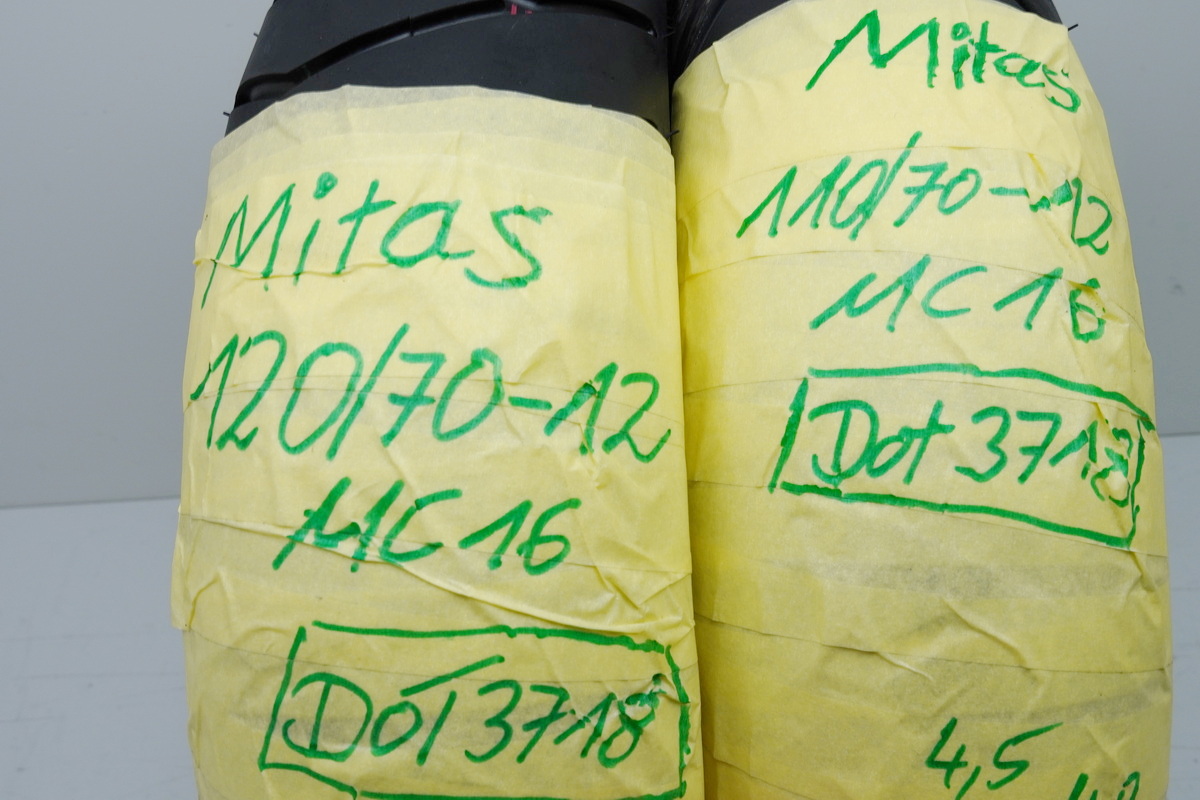 Mitas
120/70-12
MC 16
DOT 3718
Mitas
110/70-12
MC 16
Dot 3718
4,5